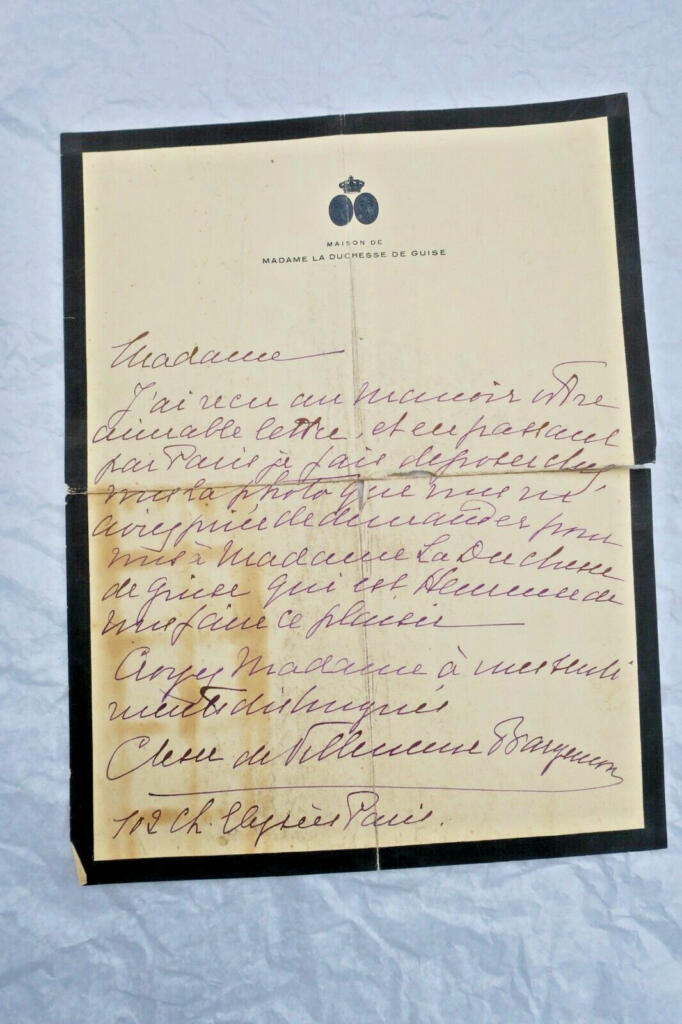 MAISON DE
MADAME LA DUCHESSE DE GUISE
Madame
J'ai reçu au manoir votre
aimable lettre, et en passant
par Paris je fais déposer chez
vous la photo que vous m'
aviez priée de demander pour
vous à Madame La Duchesse
de Guise qui est Heureuse de
vous faire ce plaisir
Croyez Madame à mes senti
ments distingués
Ctesse de Villeneuve Bargemon
102 Ch. Elysées Paris.